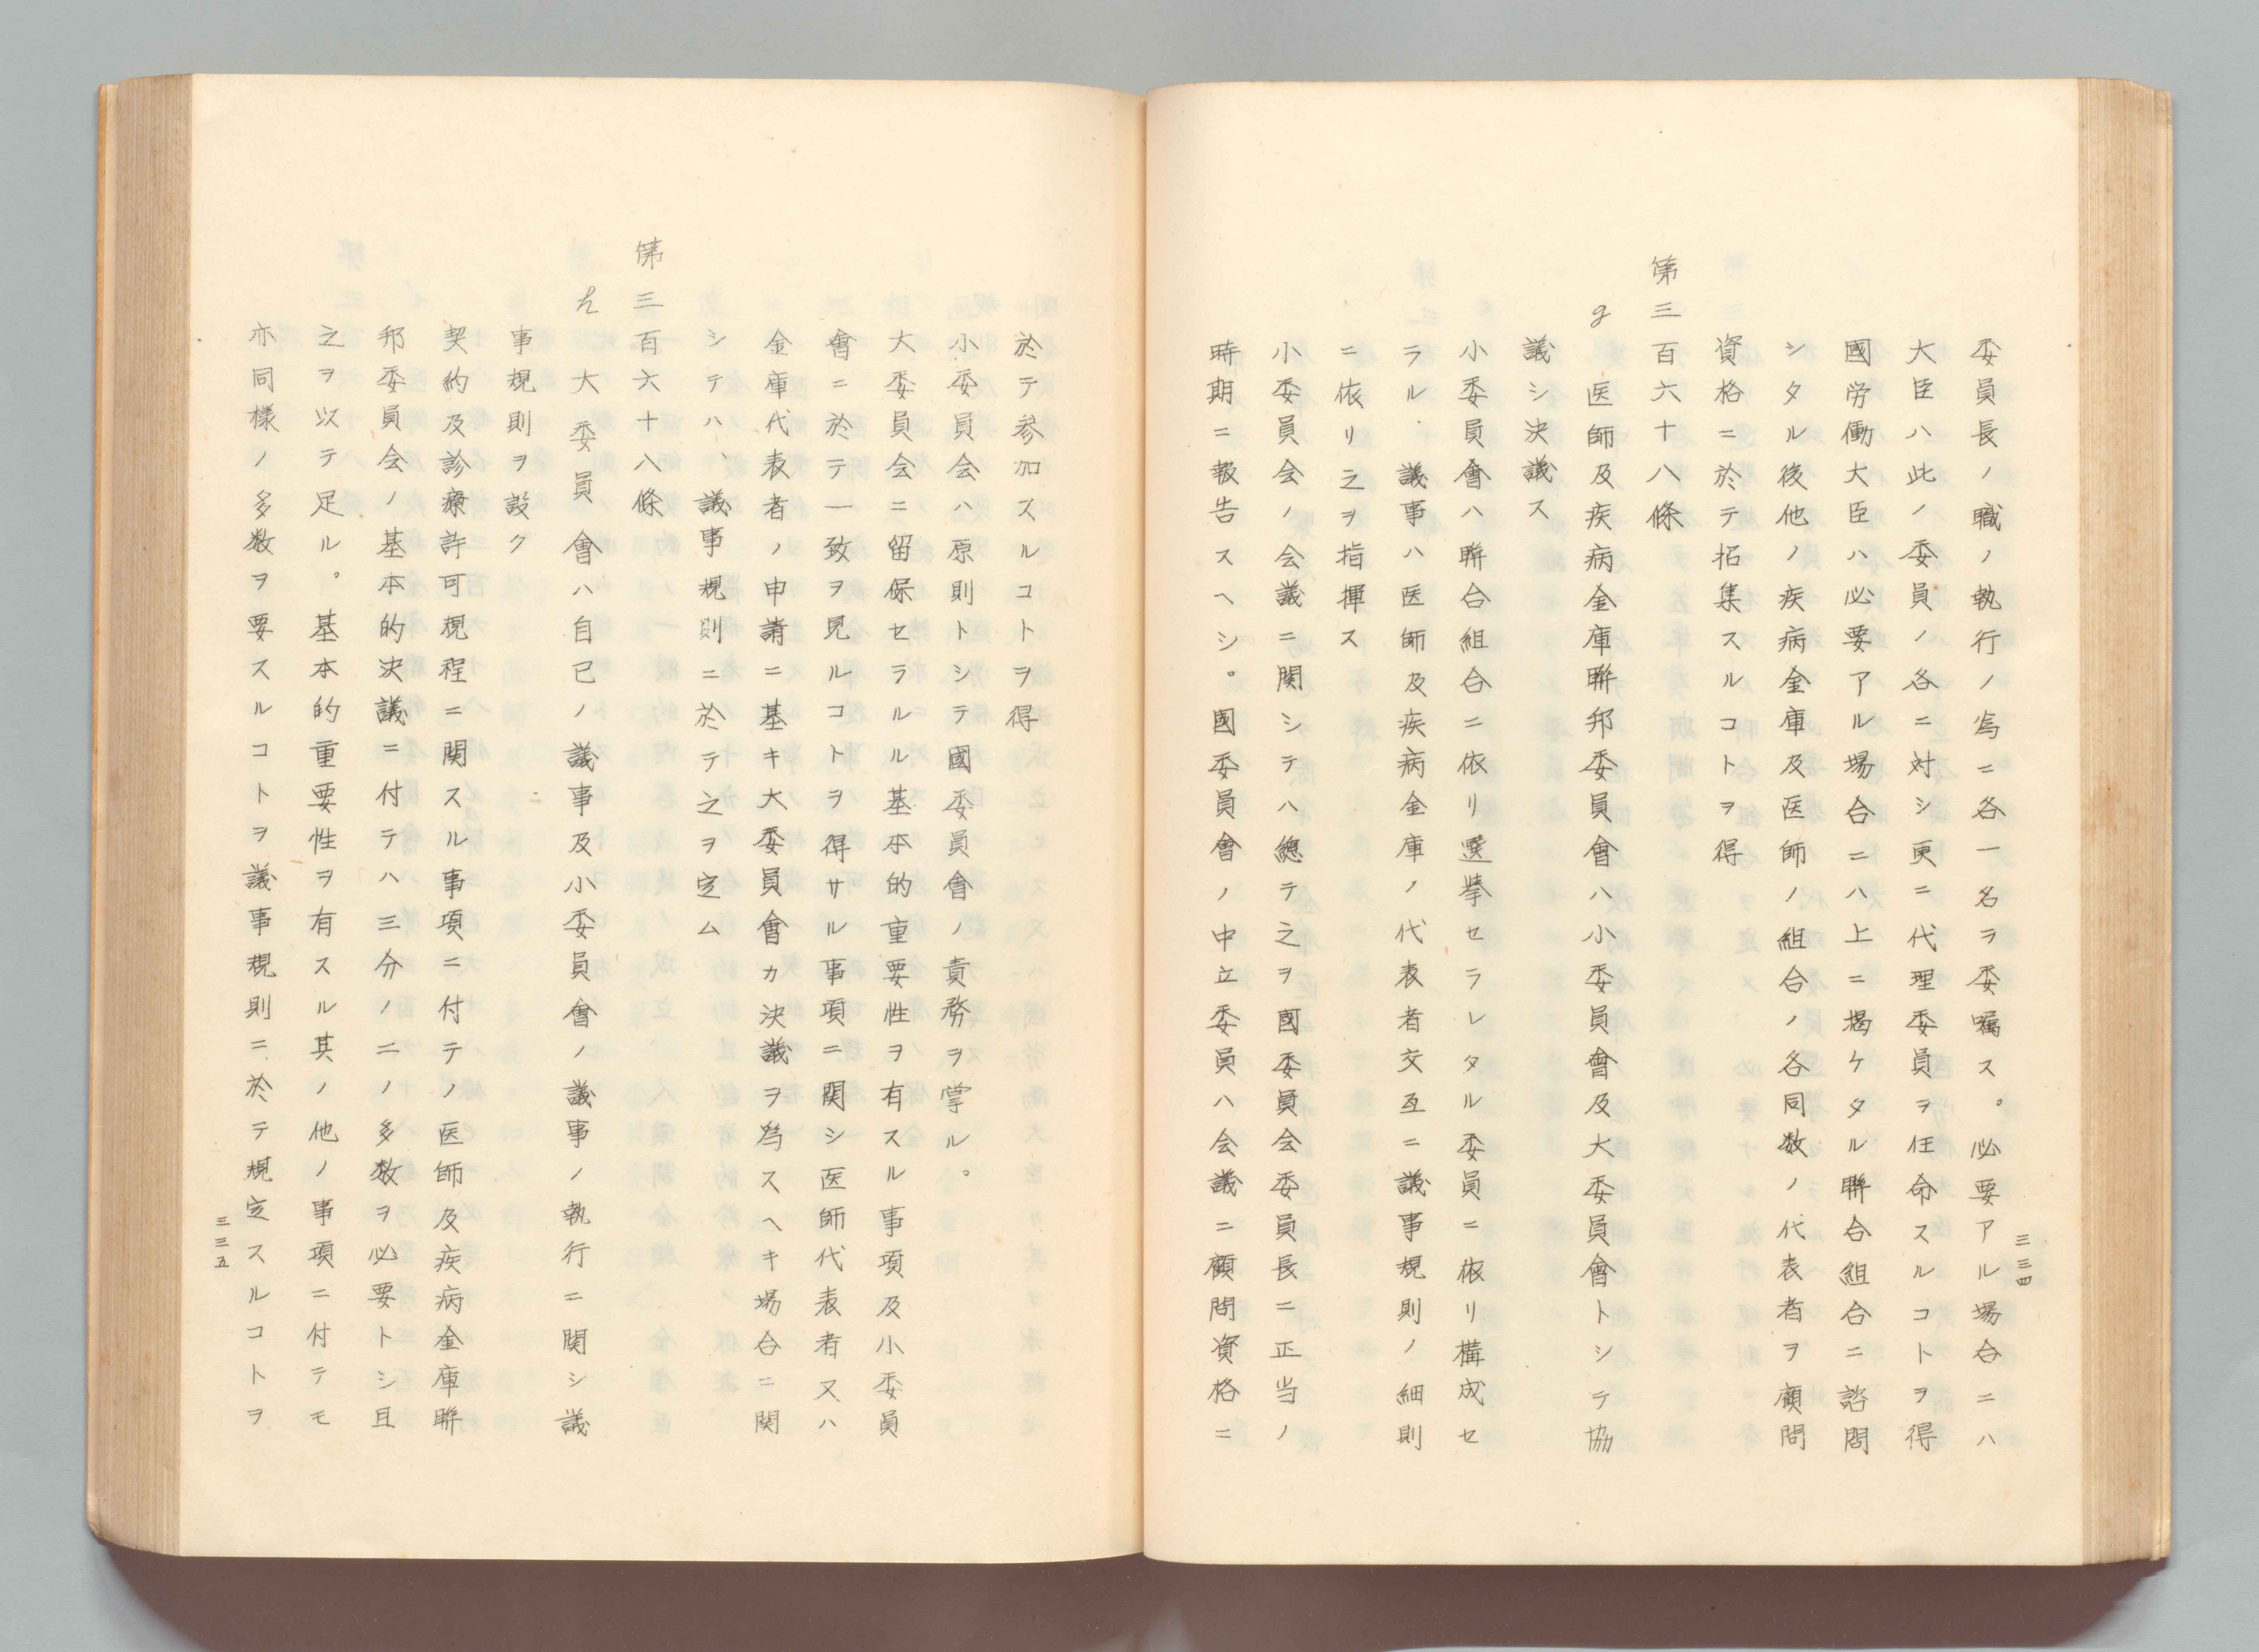 委員長ノ職ノ執行ノ為ニ各一名ヲ委嘱ス。必要アル場合ニハ
大臣ハ此ノ委員ノ各ニ対シ更ニ代理委員ヲ任命スルコトヲ得
國労働大臣ハ必要アル場合ニハ上ニ掲ケタル聯合組合ニ諮問
シタル後他ノ疾病金庫及医師ノ組合ノ各同数ノ代表者ヲ顧問
資格ニ於テ招集スルコトヲ得
第三百六十八條
g 医師及疾病金庫聯邦委員會ハ小委員會及大委員會トシテ協
議シ決議ス
小委員會ハ聯合組合ニ依リ選挙セラレタル委員ニ依リ構成セ
ラル、議事ハ医師及疾病金庫ノ代表者交互ニ議事規則ノ細則
ニ依リ之ヲ指揮ス
小委員会ノ会議ニ関シテハ總テ之ヲ國委員会委員長ニ正当ノ
時期ニ報告スヘシ。國委員會ノ中立委員ハ会議ニ顧問資格ニ
三三四
於テ参加スルコトヲ得
小委員会ハ原則トシテ國委員會ノ責務ヲ掌ル。
大委員会ニ留保セラルル基本的重要性ヲ有スル事項及小委員
會ニ於テ一致ヲ見ルコトヲ得サル事項ニ関シ医師代表者又ハ
金庫代表者ノ申請ニ基キ大委員會カ決議ヲ為スヘキ場合ニ関
シテハ、議事規則ニ於テ之ヲ定ム
第三百六十八條
h 大委員會ハ自己ノ議事及小委員會ノ議事ノ執行ニ関シ議
事規則ヲ設ク
契約及診療許可規程ニ関スル事項ニ付テノ医師及疾病金庫聯
邦委員会ノ基本的決議ニ付テハ三分ノ二ノ多数ヲ必要トシ且
之ヲ以テ足ル。基本的重要性ヲ有スル其ノ他ノ事項ニ付テモ
亦同様ノ多数ヲ要スルコトヲ議事規則ニ於テ規定スルコトヲ
三三五